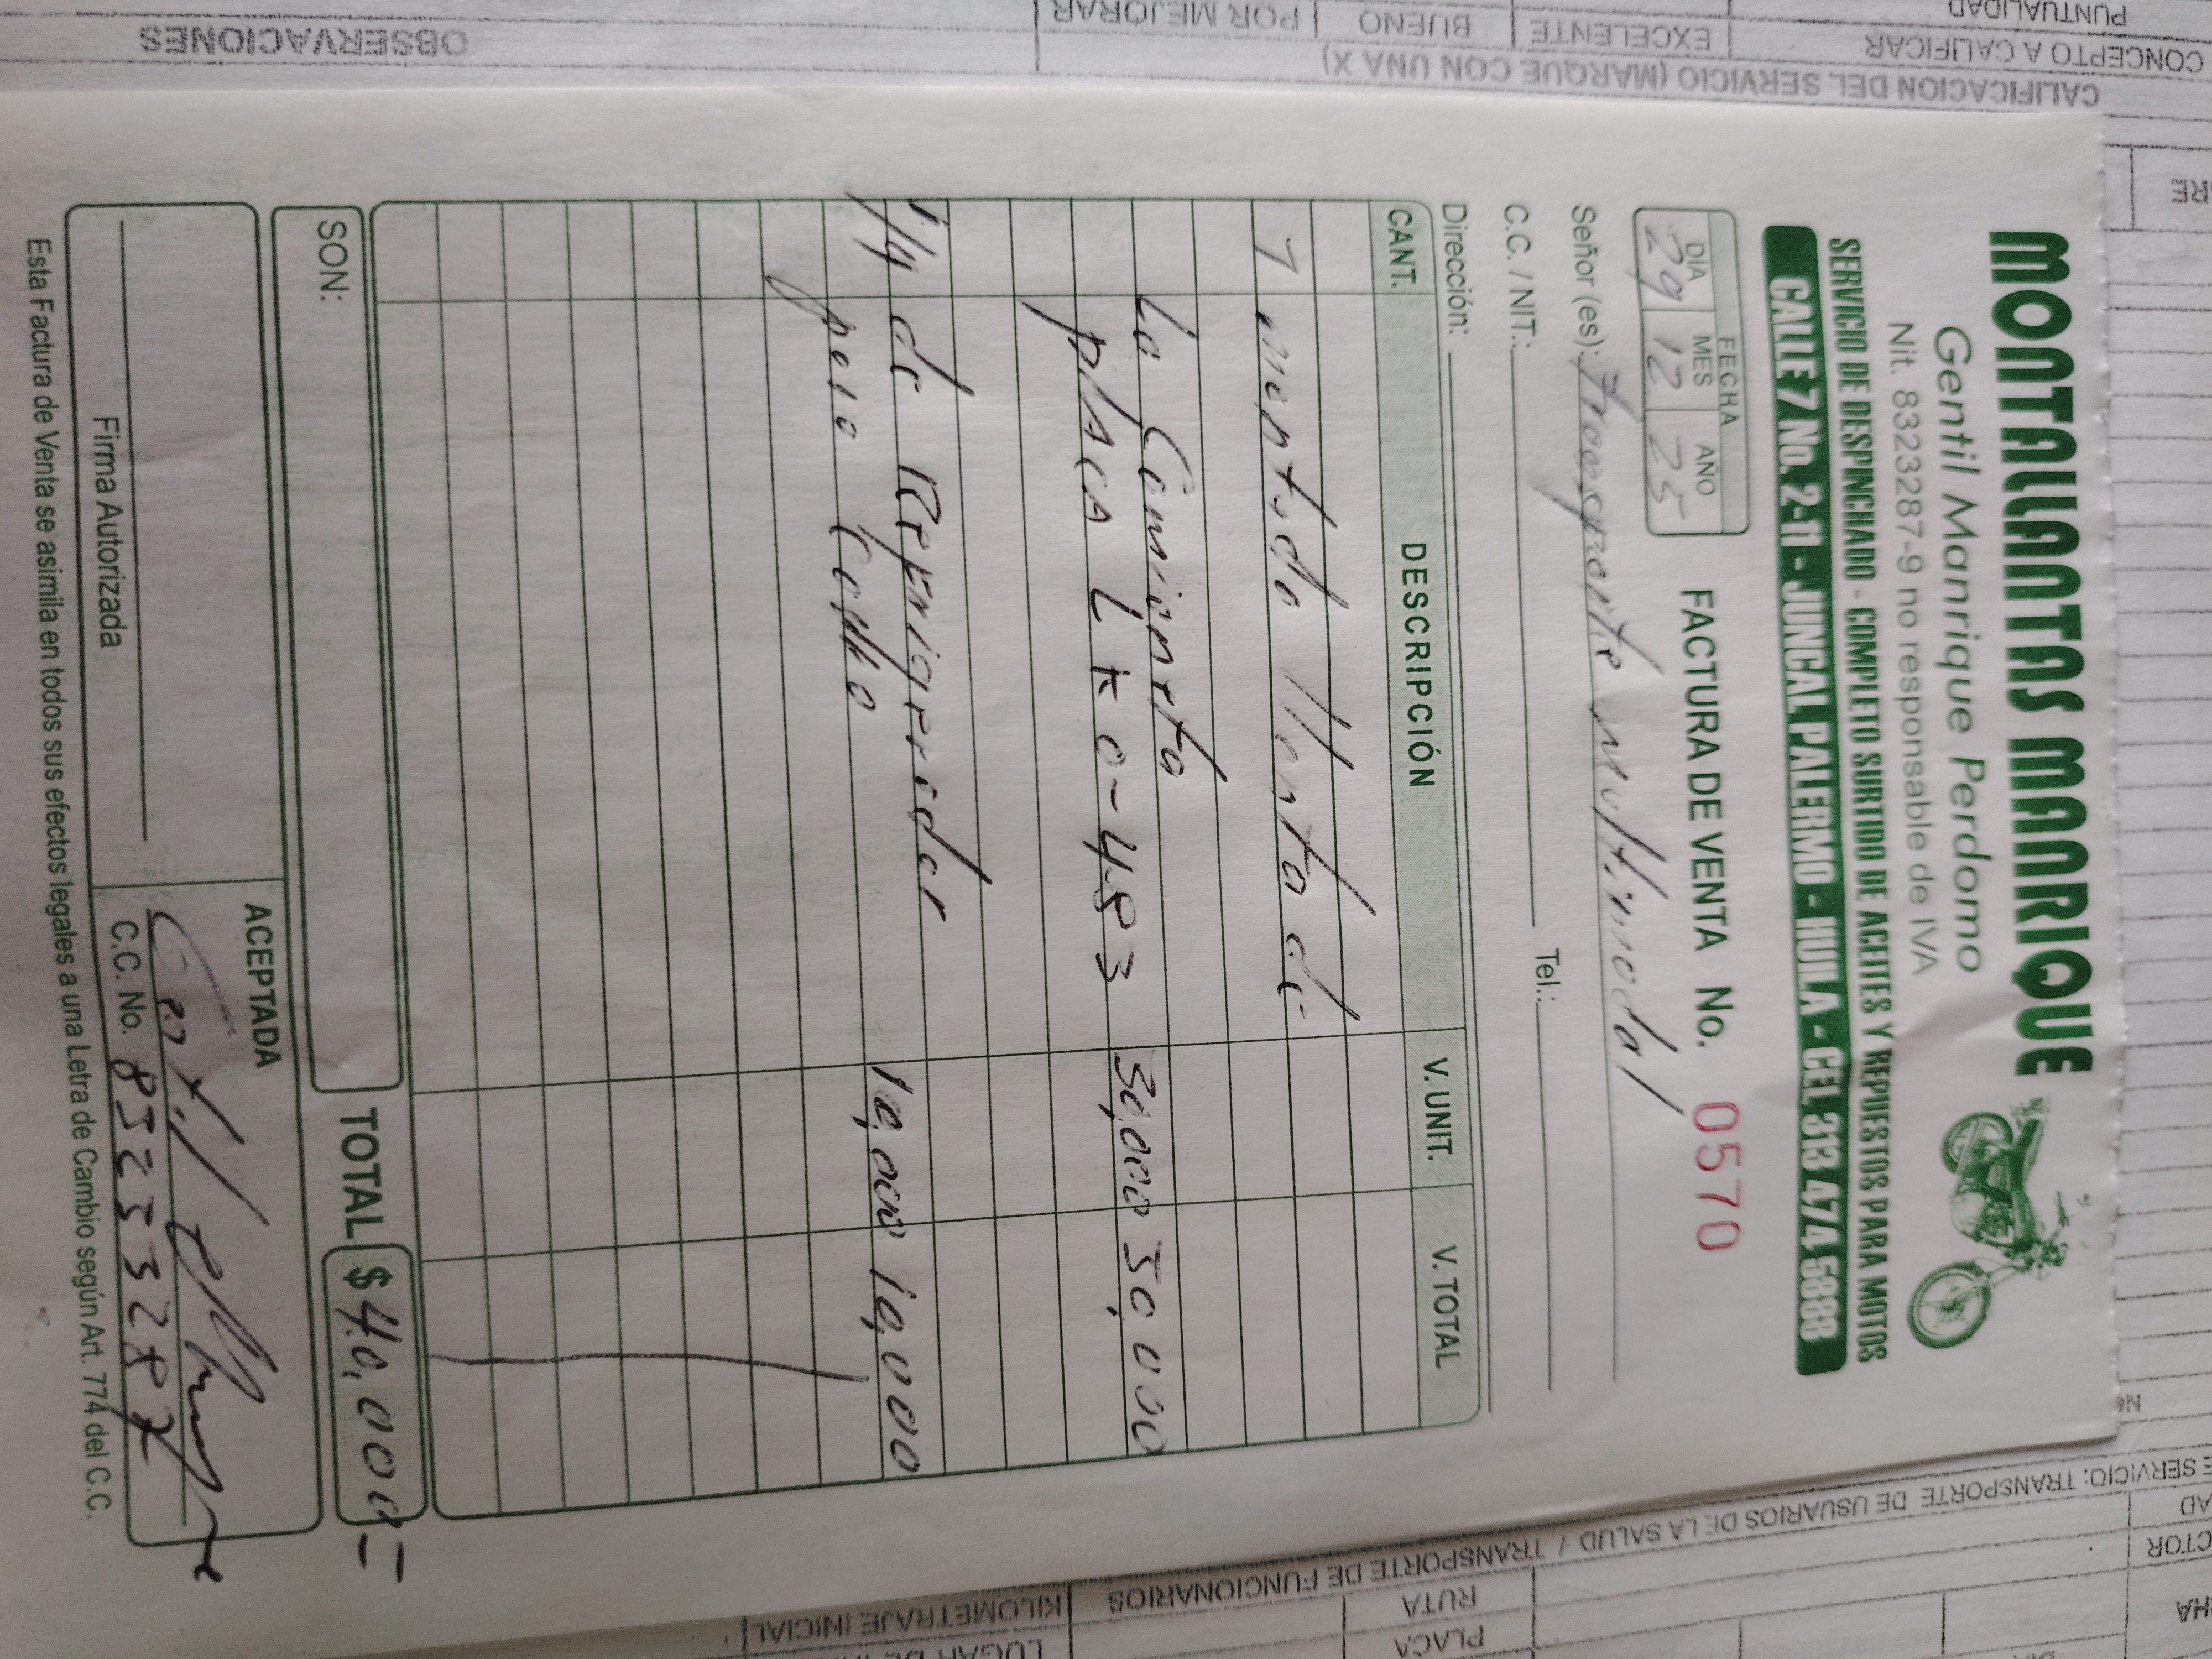 MONTALLANTAS MANRIQUE
Gentil Manrique Perdomo
Nit. 8323287-9 no responsable de IVA
SERVICIO DE DESPINCHADO - COMPLETO SURTIDO DE ACEITES Y REPUESTOS PARA MOTOS
CALLE 7 No. 2-11 - JUNCAL PALERMO - HUILA - CEL 313 474 5888
FECHA
DÍA MES AÑO
29 12 25
FACTURA DE VENTA No. 0570
Señor (es): Transporte multimodal
C.C. / NIT.: Tel.:
Dirección:
CANT. DESCRIPCIÓN V. UNIT. V. TOTAL
1 montada llanta de
La Camioneta 30,000 30,000
placa LKO-483
1/4 de Refrigerador 10,000 10,000
para
SON: TOTAL $ 40,000=
ACEPTADA
Firma Autorizada C.C. No. 83233287
Esta Factura de Venta se asimila en todos sus efectos legales a una Letra de Cambio según Art. 774 del C.C.
OBSERVACIONES
CALIFICACION DEL SERVICIO (MARQUE CON UNA X)
CONCEPTO A CALIFICAR EXCELENTE BUENO POR MEJORAR
PUNTUALIDAD
SERVICIO: TRANSPORTE DE USUARIOS DE LA SALUD / TRANSPORTE DE FUNCIONARIOS
PLACA
RUTA
KILOMETRAJE INICIAL